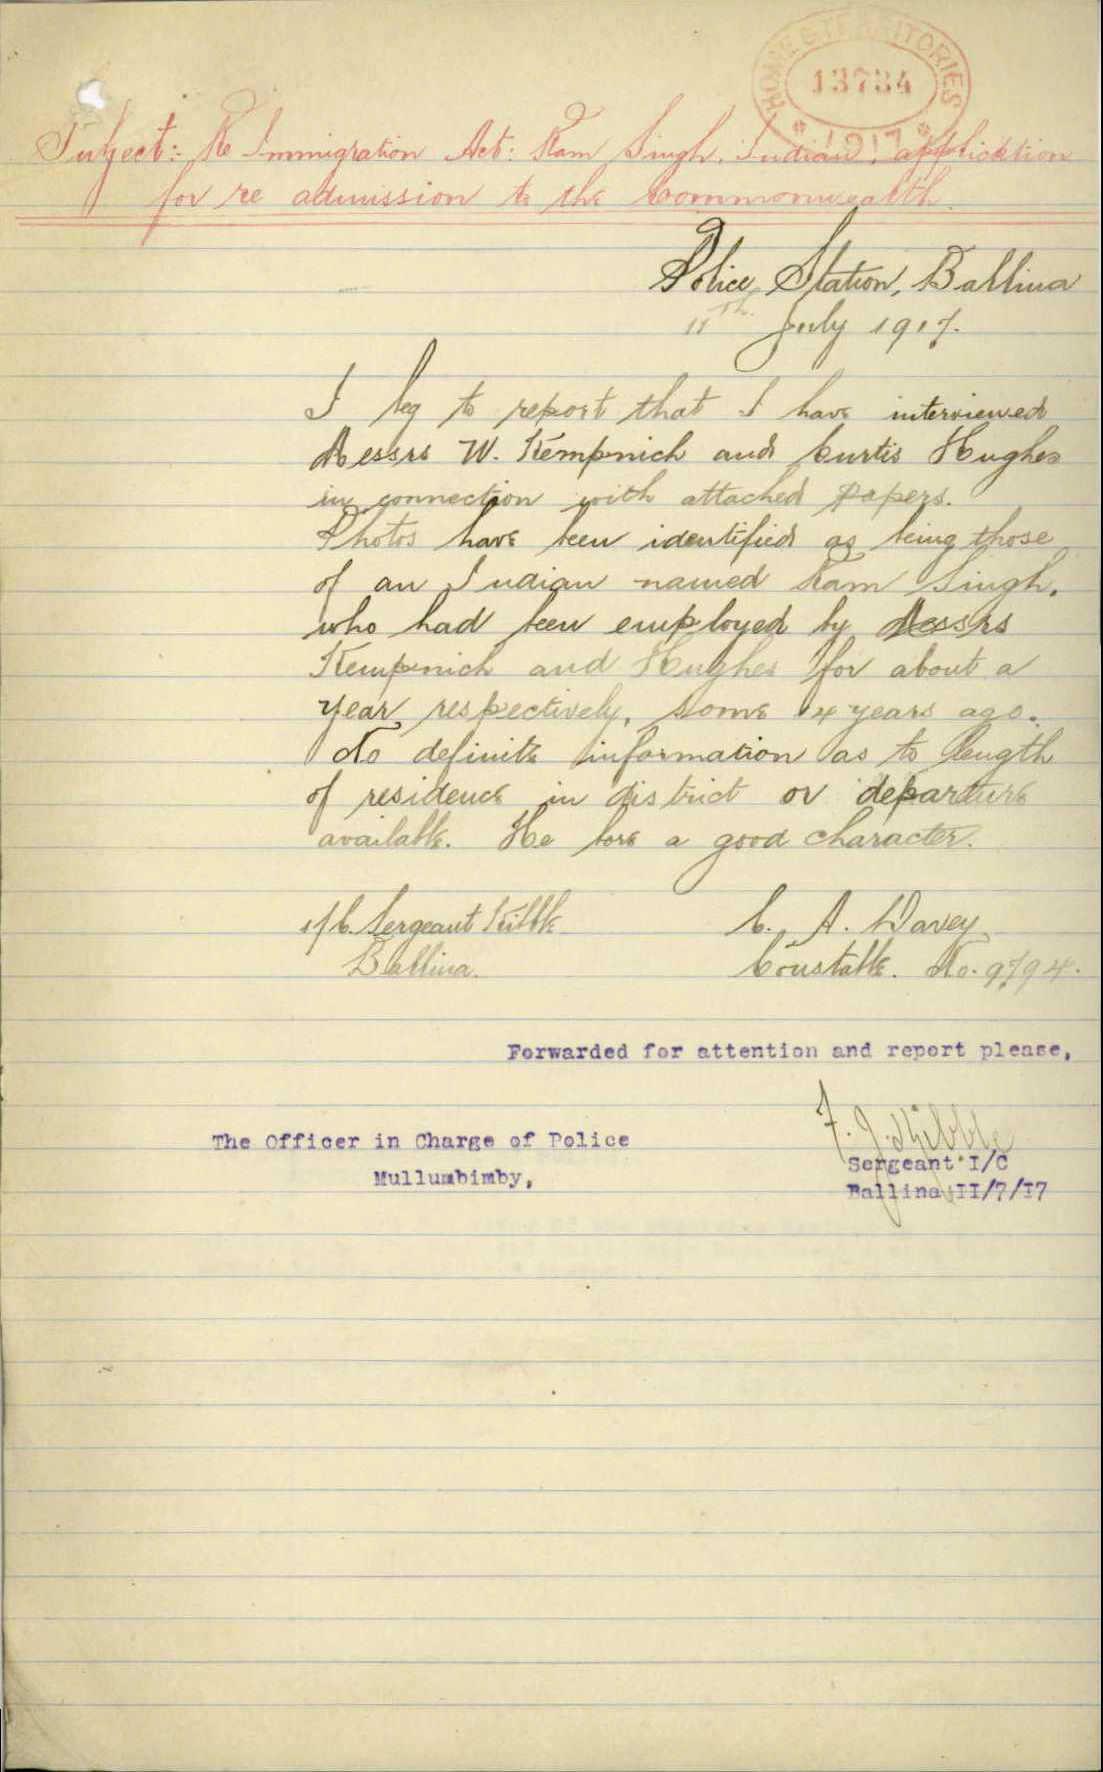 HOME & TERRITORIES
13734
* 1917 *
Subject:- Re Immigration Act: Ram Singh, Indian, application
for re admission to the Commonwealth.
Police Station, Ballina
11th. July 1917.
I beg to report that I have interviewed
Messrs W. Kempnich and Curtis Hughes
in connection with attached papers.
Photos have been identified as being those
of an Indian named Ram Singh,
who had been employed by Messrs
Kempnich and Hughes for about a
year respectively, some 4 years ago.
No definite information as to length
of residence in district or departure
available. He bore a good character.
I/C. Sergeant Kibble
Ballina.
C. A. Davey
Constable. No. 9794.
Forwarded for attention and report please,
F. J. Kibble
The Officer in Charge of Police
Sergeant I/C
Mullumbimby,
Ballina II/7/I7